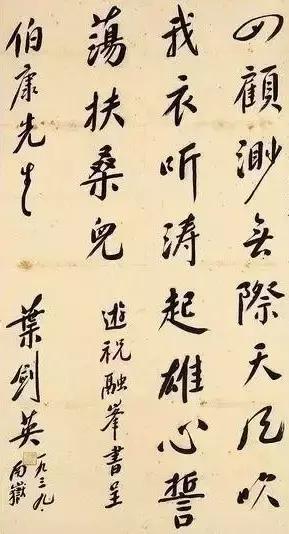 四顧渺無際天風吹
我衣听涛起雄心誓
蕩扶桑兒
遊祝融峯書呈
伯康先生
葉劍英
一九三九.
南嶽